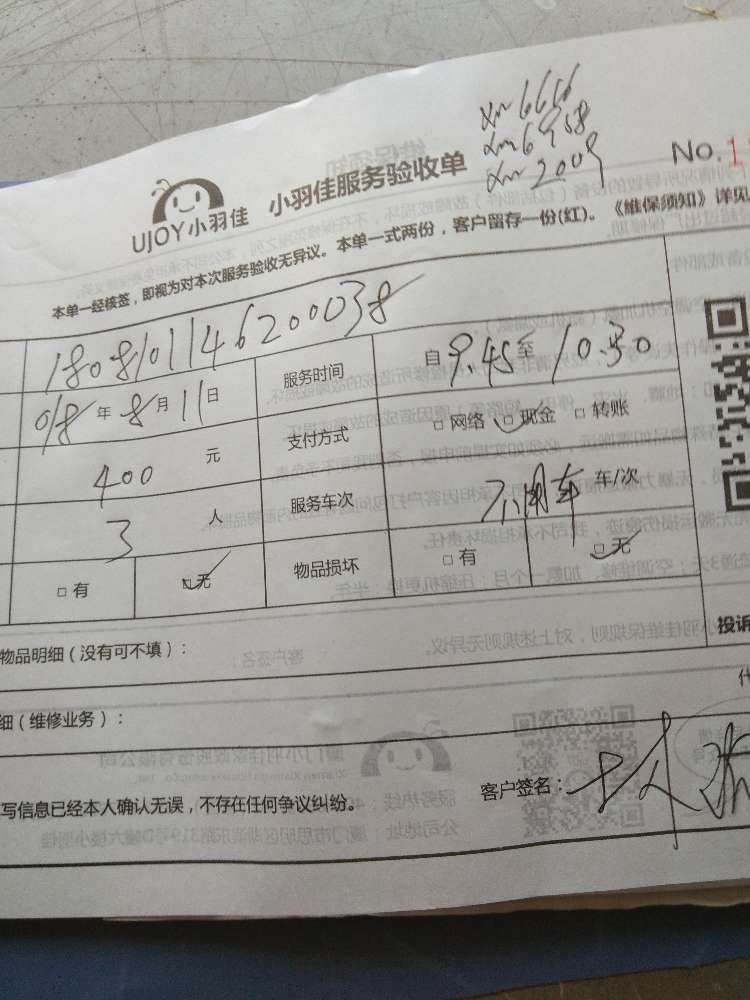 xm6656
xm6958
xm2009
No.1
UJOY小羽佳 小羽佳服务验收单
本单一经核签，即视为对本次服务验收无异议。本单一式两份，客户留存一份(红)。《维保须知》详见
180810114620038
服务时间 自 9.45 至 10.30
018年 8月 11日 支付方式 □网络 □现金 □转账
400 元
服务车次 不用车 车/次
3 人
□有 □无 物品损坏 □有 □无
物品明细（没有可不填）：
投诉
细（维修业务）：
写信息已经本人确认无误，不存在任何争议纠纷。 客户签名：